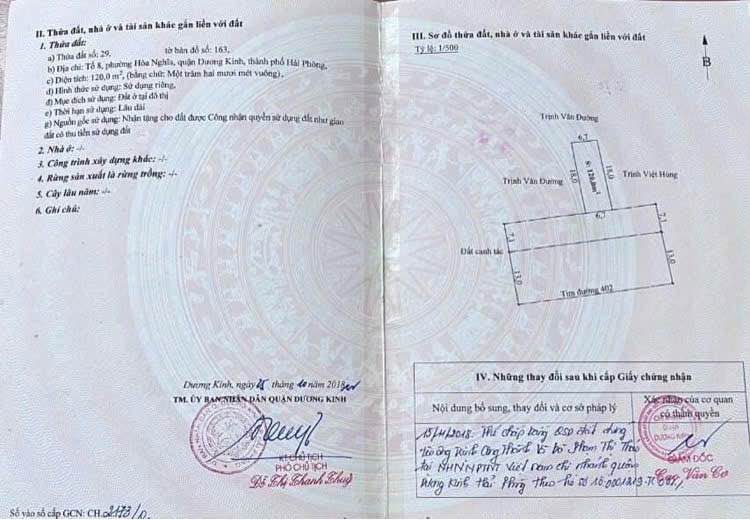 II. Thửa đất, nhà ở và tài sản khác gắn liền với đất
1. Thửa đất:
a) Thửa đất số: 29, tờ bản đồ số: 163,
b) Địa chỉ: Tổ 8, phường Hòa Nghĩa, quận Dương Kinh, thành phố Hải Phòng,
c) Diện tích: 120,0 m², (bằng chữ: Một trăm hai mươi mét vuông),
d) Hình thức sử dụng: Sử dụng riêng,
đ) Mục đích sử dụng: Đất ở tại đô thị
e) Thời hạn sử dụng: Lâu dài
g) Nguồn gốc sử dụng: Nhận tặng cho đất được Công nhận quyền sử dụng đất như giao
đất có thu tiền sử dụng đất
2. Nhà ở: -/-
3. Công trình xây dựng khác: -/-
4. Rừng sản xuất là rừng trồng: -/-
5. Cây lâu năm: -/-
6. Ghi chú:
Dương Kinh, ngày 25 tháng 10 năm 2018
TM. ỦY BAN NHÂN DÂN QUẬN DƯƠNG KINH
KT CHỦ TỊCH
PHÓ CHỦ TỊCH
Đỗ Thị Thanh Thuỷ
Số vào sổ cấp GCN: CH.
III. Sơ đồ thửa đất, nhà ở và tài sản khác gắn liền với đất
Tỷ lệ: 1/500
B
Trịnh Văn Đường
6,7
Trịnh Văn Đường
18,0
S: 120,0m²
18,0
Trịnh Việt Hùng
6,7
7,1
7,1
Đất canh tác
13,0
13,0
Tim đường 402
IV. Những thay đổi sau khi cấp Giấy chứng nhận
Nội dung bổ sung, thay đổi và cơ sở pháp lý
Xác nhận của cơ quan
có thẩm quyền
Thế chấp bằng QSD đất chung
và bà Phạm Thị Thảo
tại NHNN PTNT Việt Nam chi nhánh quận
Dương Kinh Hải Phòng theo hồ sơ số
GIÁM ĐỐC
Văn Cơ